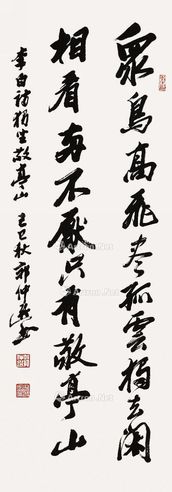 眾鳥高飛盡孤雲獨去閑
相看兩不厭只有敬亭山
李白詩獨坐敬亭山 己巳秋 郭仲選書